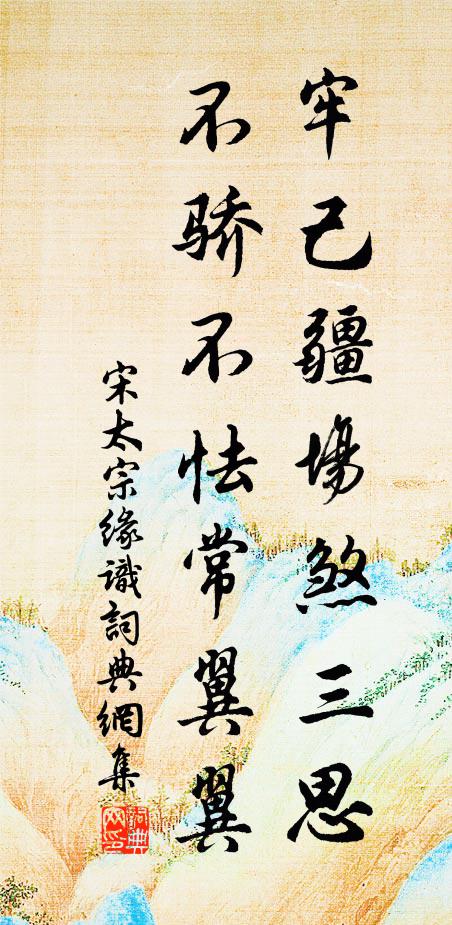 牢己疆場煞三思
不骄不怯常翼翼
宋太宗缘識詞典網集
詞典
网印